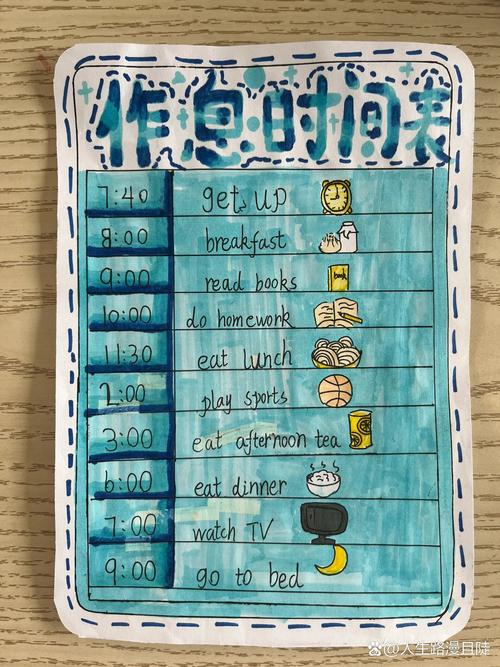 作息时间表
7:40 get up
8:00 breakfast
9:00 read books
book
10:00 do homework
11:30 eat lunch
2:00 play sports
3:00 eat afternoon tea
6:00 eat dinner
7:00 watch TV
9:00 go to bed
@人生路漫且陡